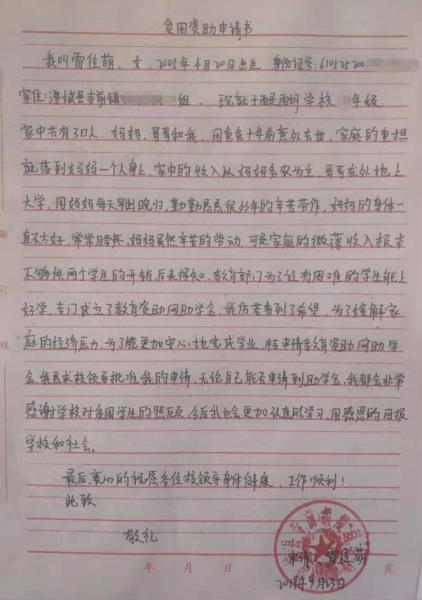 贫困资助申请书
我叫雷佳萌，女，2005年4月20日出生 身份证号：6105252005
家住：澄城县寺前镇 组，现就于醍醐学校 年级
家中共有3口人：妈妈，哥哥和我，因爸爸十年前意外去世，家庭的重担
就落到妈妈一个人身上，家中的收入以妈妈务农为主，哥哥在外地上
大学，用妈妈每天早出晚归，勤勤恳恳很多年的辛苦劳作，妈妈的身体一
直不太好，常常腰疼，妈妈虽然辛苦的劳动，可是家庭的微薄收入根本
不够供两个学生的开销，后来得知，教育部门为了让有困难的学生能上
好学，专门成立了教育资助网助学金，我仿若看到了希望，为了缓解家
庭的经济压力，为了能更加安心地完成学业，特申请教育资助网助学
金，我恳求校领导批准我的申请，无论自己能否申请到助学金，我都会非常
感谢学校对贫困学生的照顾，今后我也会更加认真的学习，用感恩的回报
学校和社会。
最后衷心的祝愿各位校领导身体健康，工作顺利！
此致
敬礼
申请人：雷佳萌
2019年9月23日
年 月 日 页